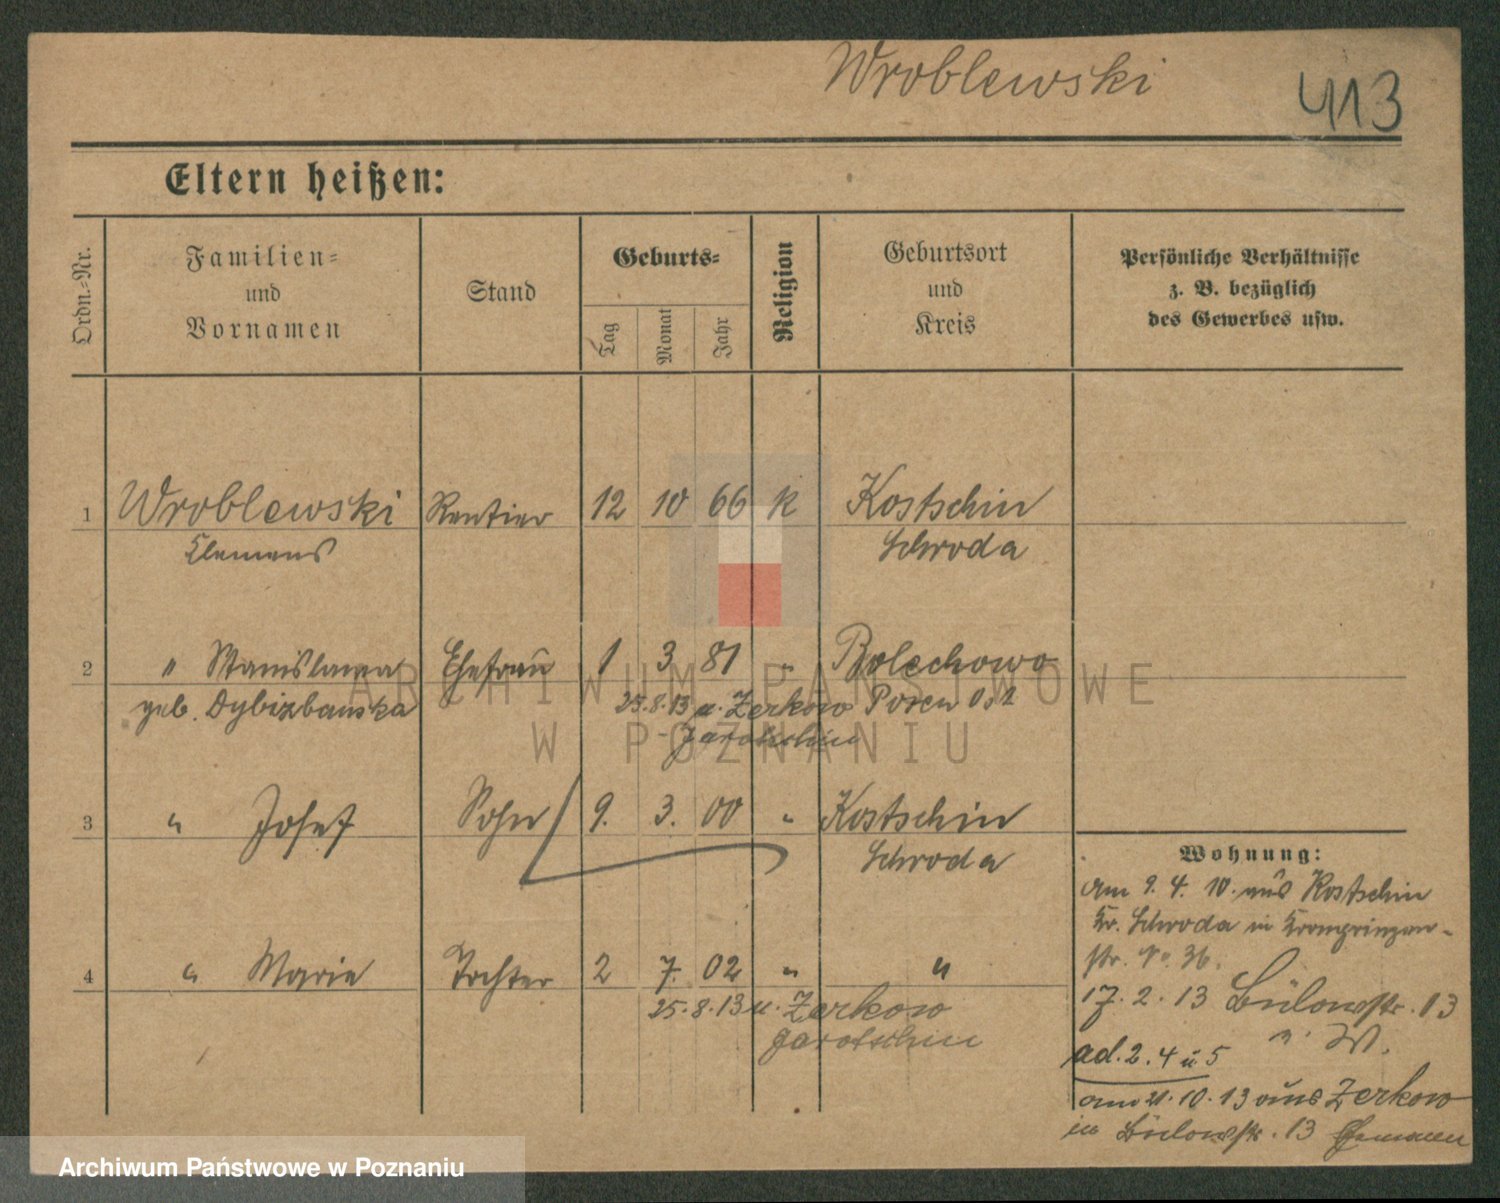 Wroblewski
413
Eltern heißen:
Ordn.-Nr.
Familien-
und
Vornamen
Stand
Geburts-
Tag
Monat
Jahr
Religion
Geburtsort
und
Kreis
Persönliche Verhältnisse
z. B. bezüglich
des Gewerbes usw.
1 Wroblewski Rentier 12 10 66 k Kostschin
Clemens Schroda
2 " Stanislawa Ehefrau 1 3 81 " Bolechowo
geb. Dybizbanska Posen Ost
25.8.13 n. Zerkow
Jarotschin
3 " Josef Sohn 9. 3. 00 " Kostschin
Schroda
4 " Marie Tochter 2 7. 02 " "
25.8.13 n. Zerkow
Jarotschin
Wohnung:
am 9. 4. 10. aus Kostschin
Kr. Schroda in Kronprinzen-
str. No. 36.
17. 2. 13 Bülowstr. 13
ad. 2. 4 u 5
am 21.10.13 aus Zerkow
in Bülowstr. 13
ARCHIWUM PAŃSTWOWE
W POZNANIU
Archiwum Państwowe w Poznaniu